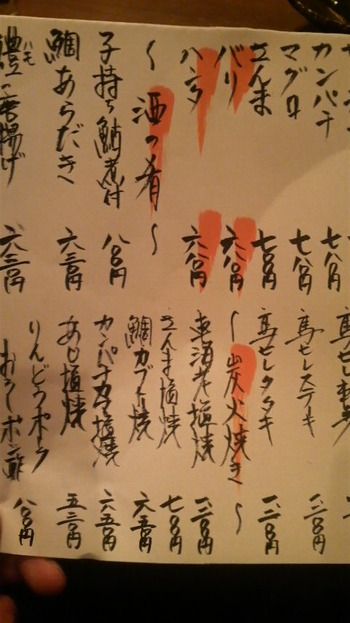 カンパチ 七八〇円
マグロ 七八〇円
さんま 七〇〇円
バリ 六八〇円
ハタ 六八〇円
〜酒の肴〜
子持ち鮎煮付 八〇〇円
鯛あらだき 六三〇円
鱧の唐揚げ 六三〇円
ハモ
馬ヒレステーキ 一二〇〇円
馬ヒレタタキ 一二〇〇円
〜炭火焼き〜
車海老塩焼 一二〇〇円
さんま塩焼 七〇〇円
鯛カブト焼 六五〇円
カンパチカマ塩焼 六五〇円
あじ塩焼 五三〇円
りんどうポーク
おろしポン酢 八〇〇円